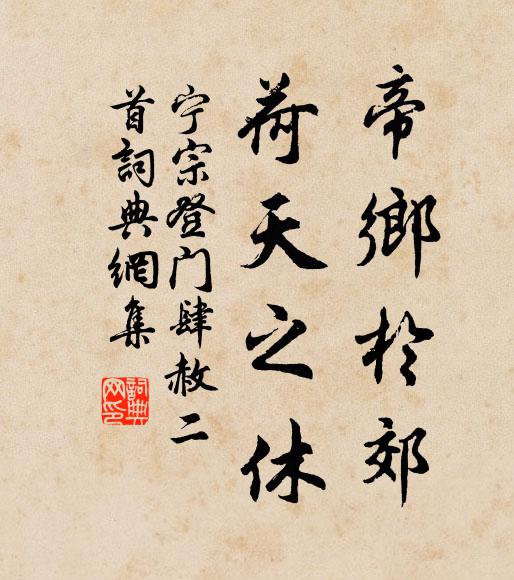 帝鄉於郊
荷天之休
宁宗登门肆赦二
首詞典網集
詞典
网印